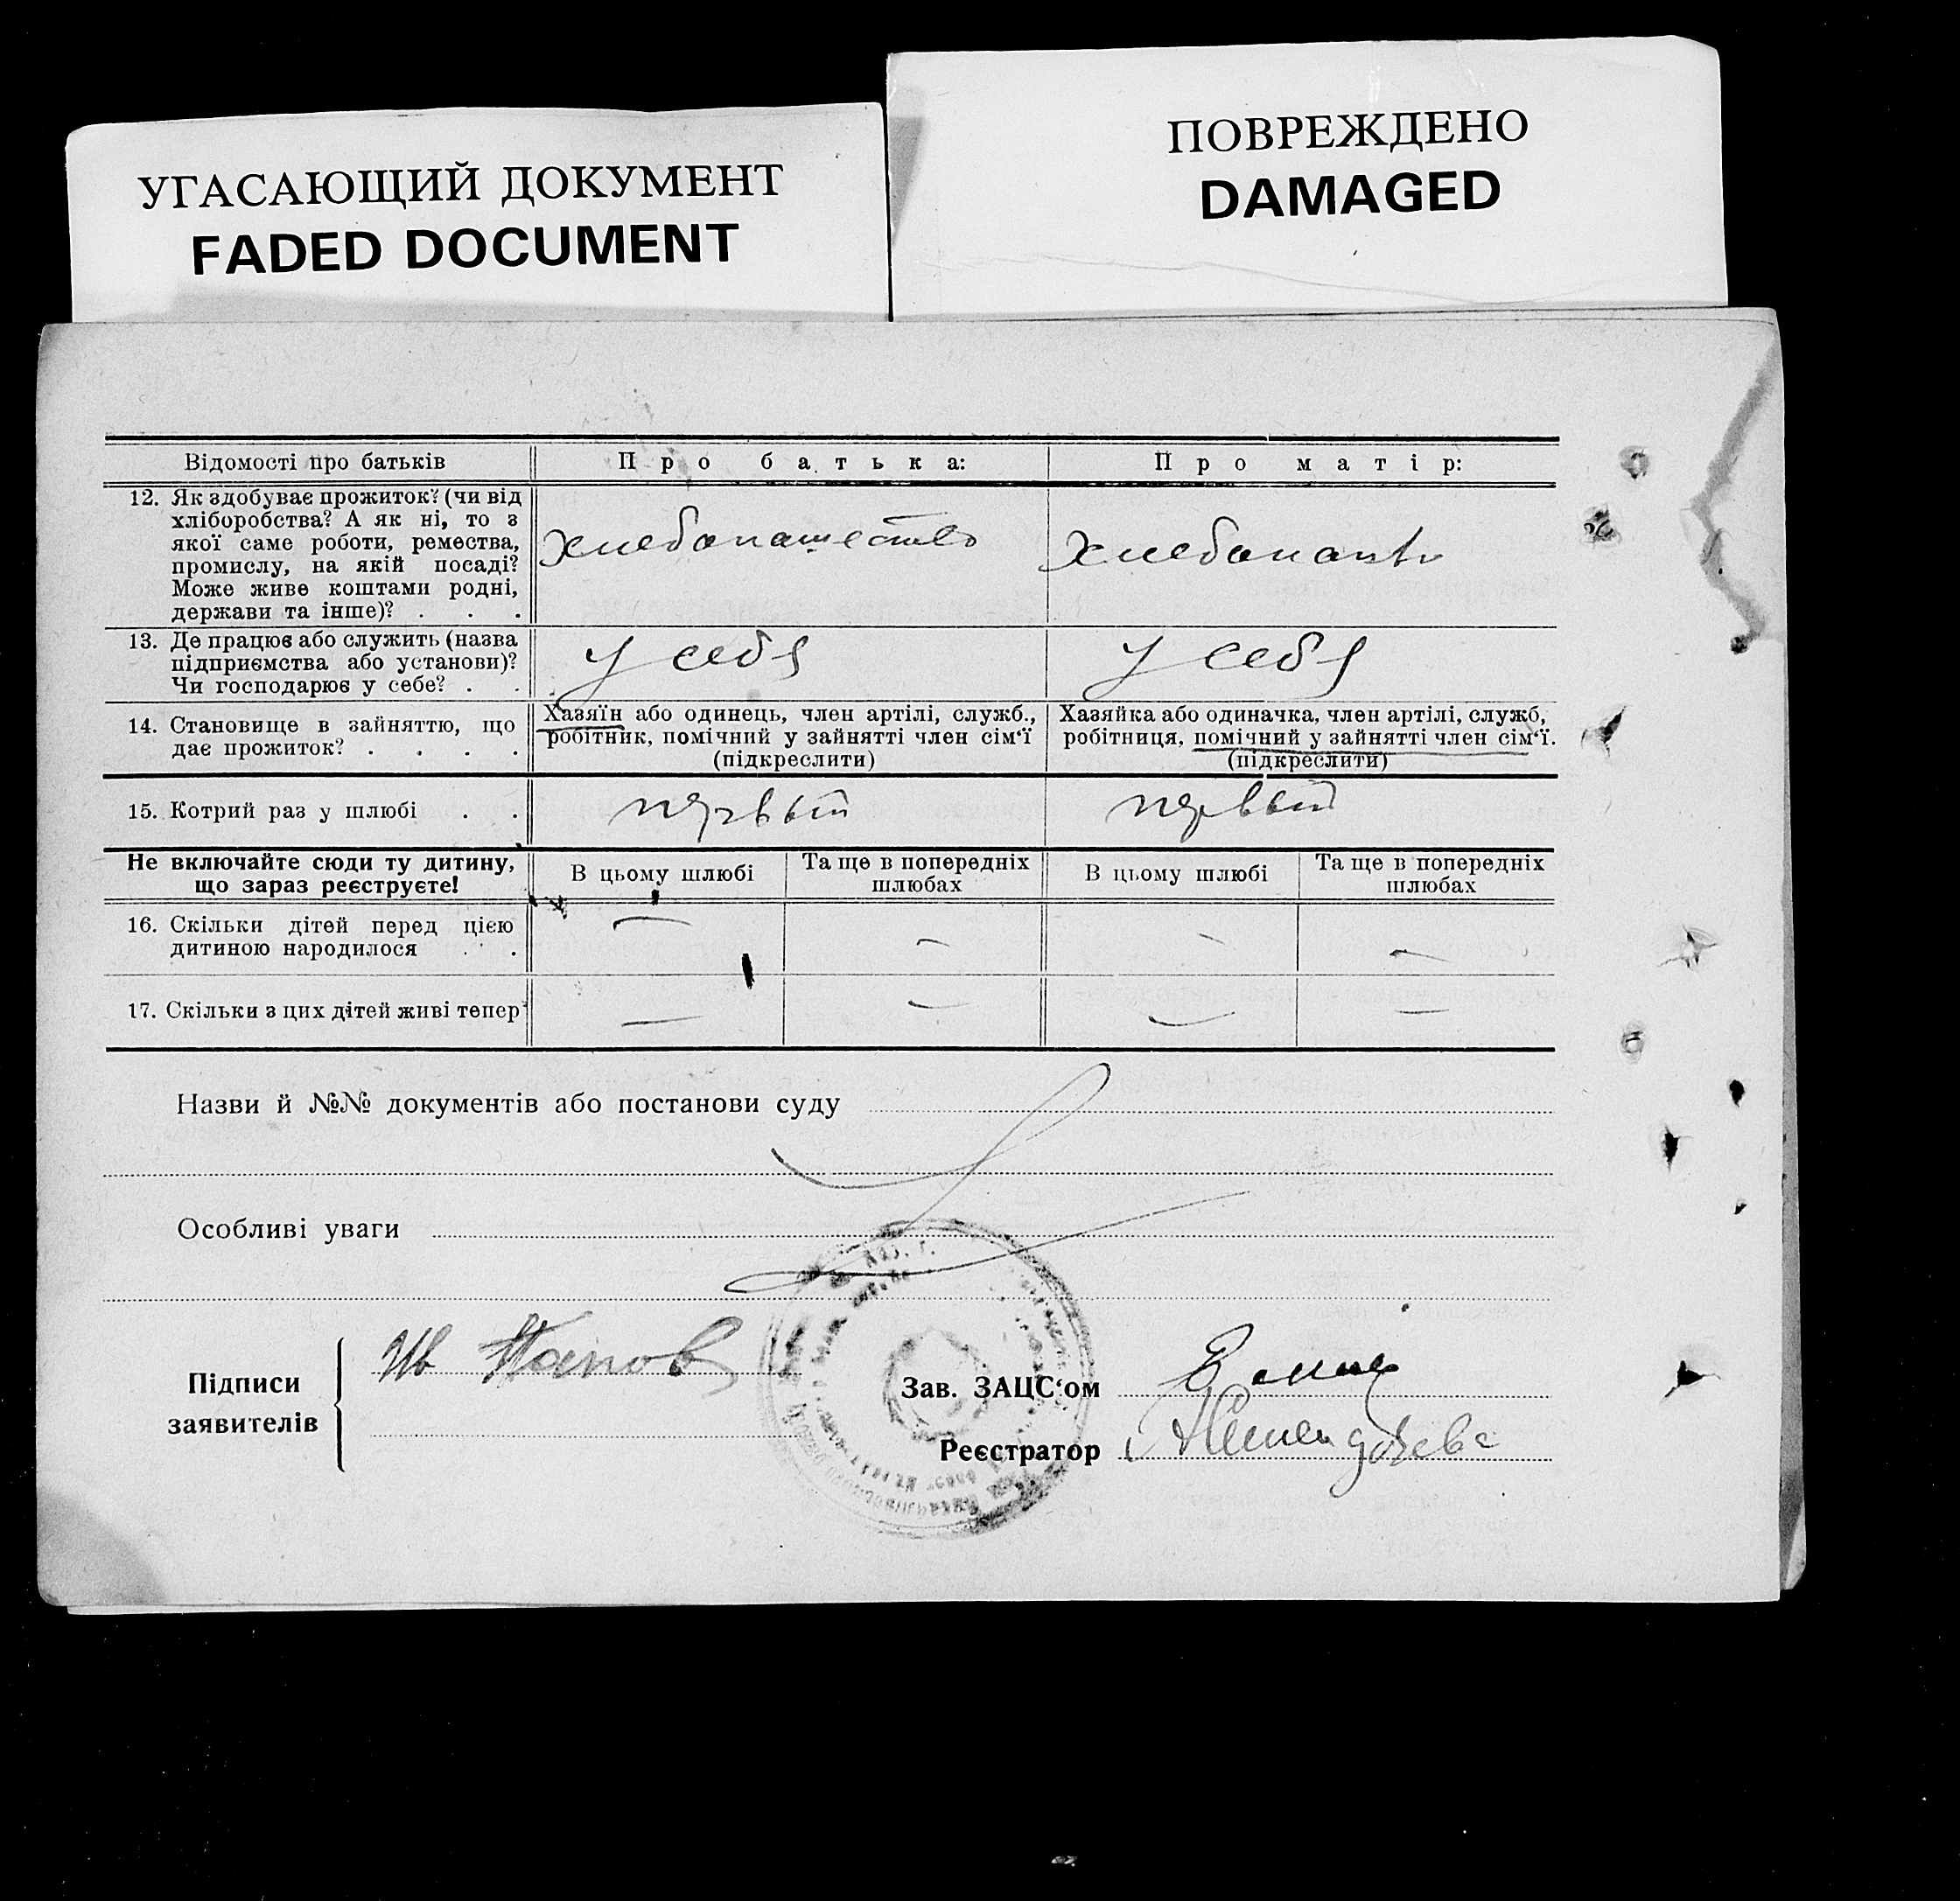 УГАСАЮЩИЙ ДОКУМЕНТ
FADED DOCUMENT
ПОВРЕЖДЕНО
DAMAGED
Відомості про батьків
Про батька:
Про матір:
12. Як здобуває прожиток? (чи від
хліборобства? А як ні, то з
якої саме роботи, ремества,
промислу, на якій посаді?
Може живе коштами родні,
держави та інше)? . . .
хлебопашество
Хлебопашь
13. Де працює або служить (назва
підприємства або установи)?
Чи господарює у себе? . .
у себя
у себя
14. Становище в зайняттю, що
дає прожиток? . . . .
Хазяїн або одинець, член артілі, служб.,
робітник, помічний у зайнятті член сім‘ї
(підкреслити)
Хазяйка або одиначка, член артілі, служб,
робітниця, помічний у зайнятті член сім‘ї.
(підкреслити)
15. Котрий раз у шлюбі . .
первый
первый
Не включайте сюди ту дитину,
що зараз реєструєте!
В цьому шлюбі
Та ще в попередніх
шлюбах
В цьому шлюбі
Та ще в попередніх
шлюбах
16. Скільки дітей перед цією
дитиною народилося . .
— — — —
17. Скільки з цих дітей живі тепер
— — — —
Назви й №№ документів або постанови суду
Особливі уваги
Підписи
заявителів
Ив
Зав. ЗАЦС‘ом
Реєстратор